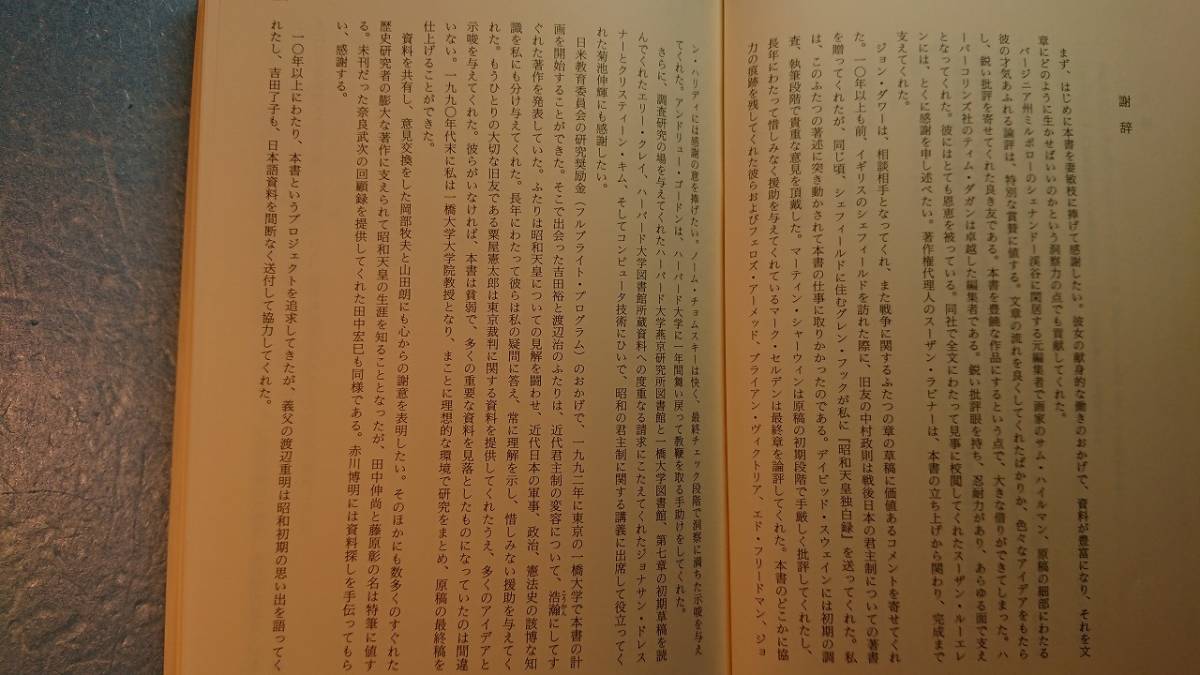 謝辞
まず、はじめに本書を妻敏枝に捧げて感謝したい。彼女の献身的な働きのおかげで、資料が豊富になり、それを文
章にどのように生かせばいいのかという洞察力の点でも貢献してくれた。
バージニア州ミルボローのシェナンドー渓谷に閑居する元編集者で画家のサム・ハイルマン、原稿の細部にわたる
彼の才気あふれる論評は、特別な賞賛に値する。文章の流れを良くしてくれたばかりか、色々なアイデアをもたら
し、鋭い批評を寄せてくれた良き友である。本書を豊饒な作品にするという点で、大きな借りができてしまった。ハ
ーパーコリンズ社のティム・ダガンは卓越した編集者である。鋭い批評眼を持ち、忍耐力があり、あらゆる面で支え
となってくれた。彼にはとても恩恵を被っている。同社で全文にわたって見事に校閲してくれたスーザン・ルーエレ
ンには、とくに感謝を申し述べたい。著作権代理人のスーザン・ラビナーは、本書の立ち上げから関わり、完成まで
支えてくれた。
ジョン・ダワーは、相談相手となってくれ、また戦争に関するふたつの章の草稿に価値あるコメントを寄せてくれ
た。一〇年以上も前、イギリスのシェフィールドを訪れた際に、旧友の中村政則は戦後日本の君主制についての著書
を贈ってくれたが、同じ頃、シェフィールドに住むグレン・フックが私に『昭和天皇独白録』を送ってくれた。私
は、このふたつの著述に突き動かされて本書の仕事に取りかかったのである。デイビッド・スウェインには初期の調
査、執筆段階で貴重な意見を頂戴した。マーティン・シャーウィンは原稿の初期段階で手厳しく批評してくれたし、
長年にわたって惜しみなく援助を与えてくれているマーク・セルデンは最終章を論評してくれた。本書のどこかに協
力の痕跡を残してくれた彼らおよびフェロズ・アーメッド、ブライアン・ヴィクトリア、エド・フリードマン、ジョ
ン・ハリディには感謝の意を捧げたい。ノーム・チョムスキーは快く、最終チェック段階で洞察に満ちた示唆を与え
てくれた。アンドリュー・ゴードンは、ハーバード大学に一年間舞い戻って教鞭を取る手助けをしてくれた。
さらに、調査研究の場を与えてくれたハーバード大学燕京研究所図書館と一橋大学図書館、第七章の初期草稿を読
んでくれたエリー・クレイ、ハーバード大学図書館所蔵資料への度重なる請求にこたえてくれたジョナサン・ドレス
ナーとクリスティーン・キム、そしてコンピュータ技術にひいで、昭和の君主制に関する講義に出席して役立ってく
れた菊池伸輝にも感謝したい。
日米教育委員会の研究奨励金（フルブライト・プログラム）のおかげで、一九九二年に東京の一橋大学で本書の計
画を開始することができた。そこで出会った吉田裕と渡辺治のふたりは、近代君主制の変容について、浩瀚にしてす
ぐれた著作を発表していた。ふたりは昭和天皇についての見解を闘わせ、近代日本の軍事、政治、憲法史の該博な知
識を私にも分け与えてくれた。長年にわたって彼らは私の疑問に答え、常に理解を示し、惜しみない援助を与えてく
れた。もうひとりの大切な旧友である粟屋憲太郎は東京裁判に関する資料を提供してくれたうえ、多くのアイデアと
示唆を与えてくれた。彼らがいなければ、本書は貧弱で、多くの重要な資料を見落としたものになっていたのは間違
いない。一九九〇年代末に私は一橋大学大学院教授となり、まことに理想的な環境で研究をまとめ、原稿の最終稿を
仕上げることができた。
資料を共有し、意見交換をした岡部牧夫と山田朗にも心からの謝意を表明したい。そのほかにも数多くのすぐれた
歴史研究者の膨大な著作に支えられて昭和天皇の生涯を知ることとなったが、田中伸尚と藤原彰の名は特筆に値す
る。未刊だった奈良武次の回顧録を提供してくれた田中宏巳も同様である。赤川博明には資料探しを手伝ってもら
い、感謝する。
一〇年以上にわたり、本書というプロジェクトを追求してきたが、義父の渡辺重明は昭和初期の思い出を語ってく
れたし、吉田了子も、日本語資料を間断なく送付して協力してくれた。